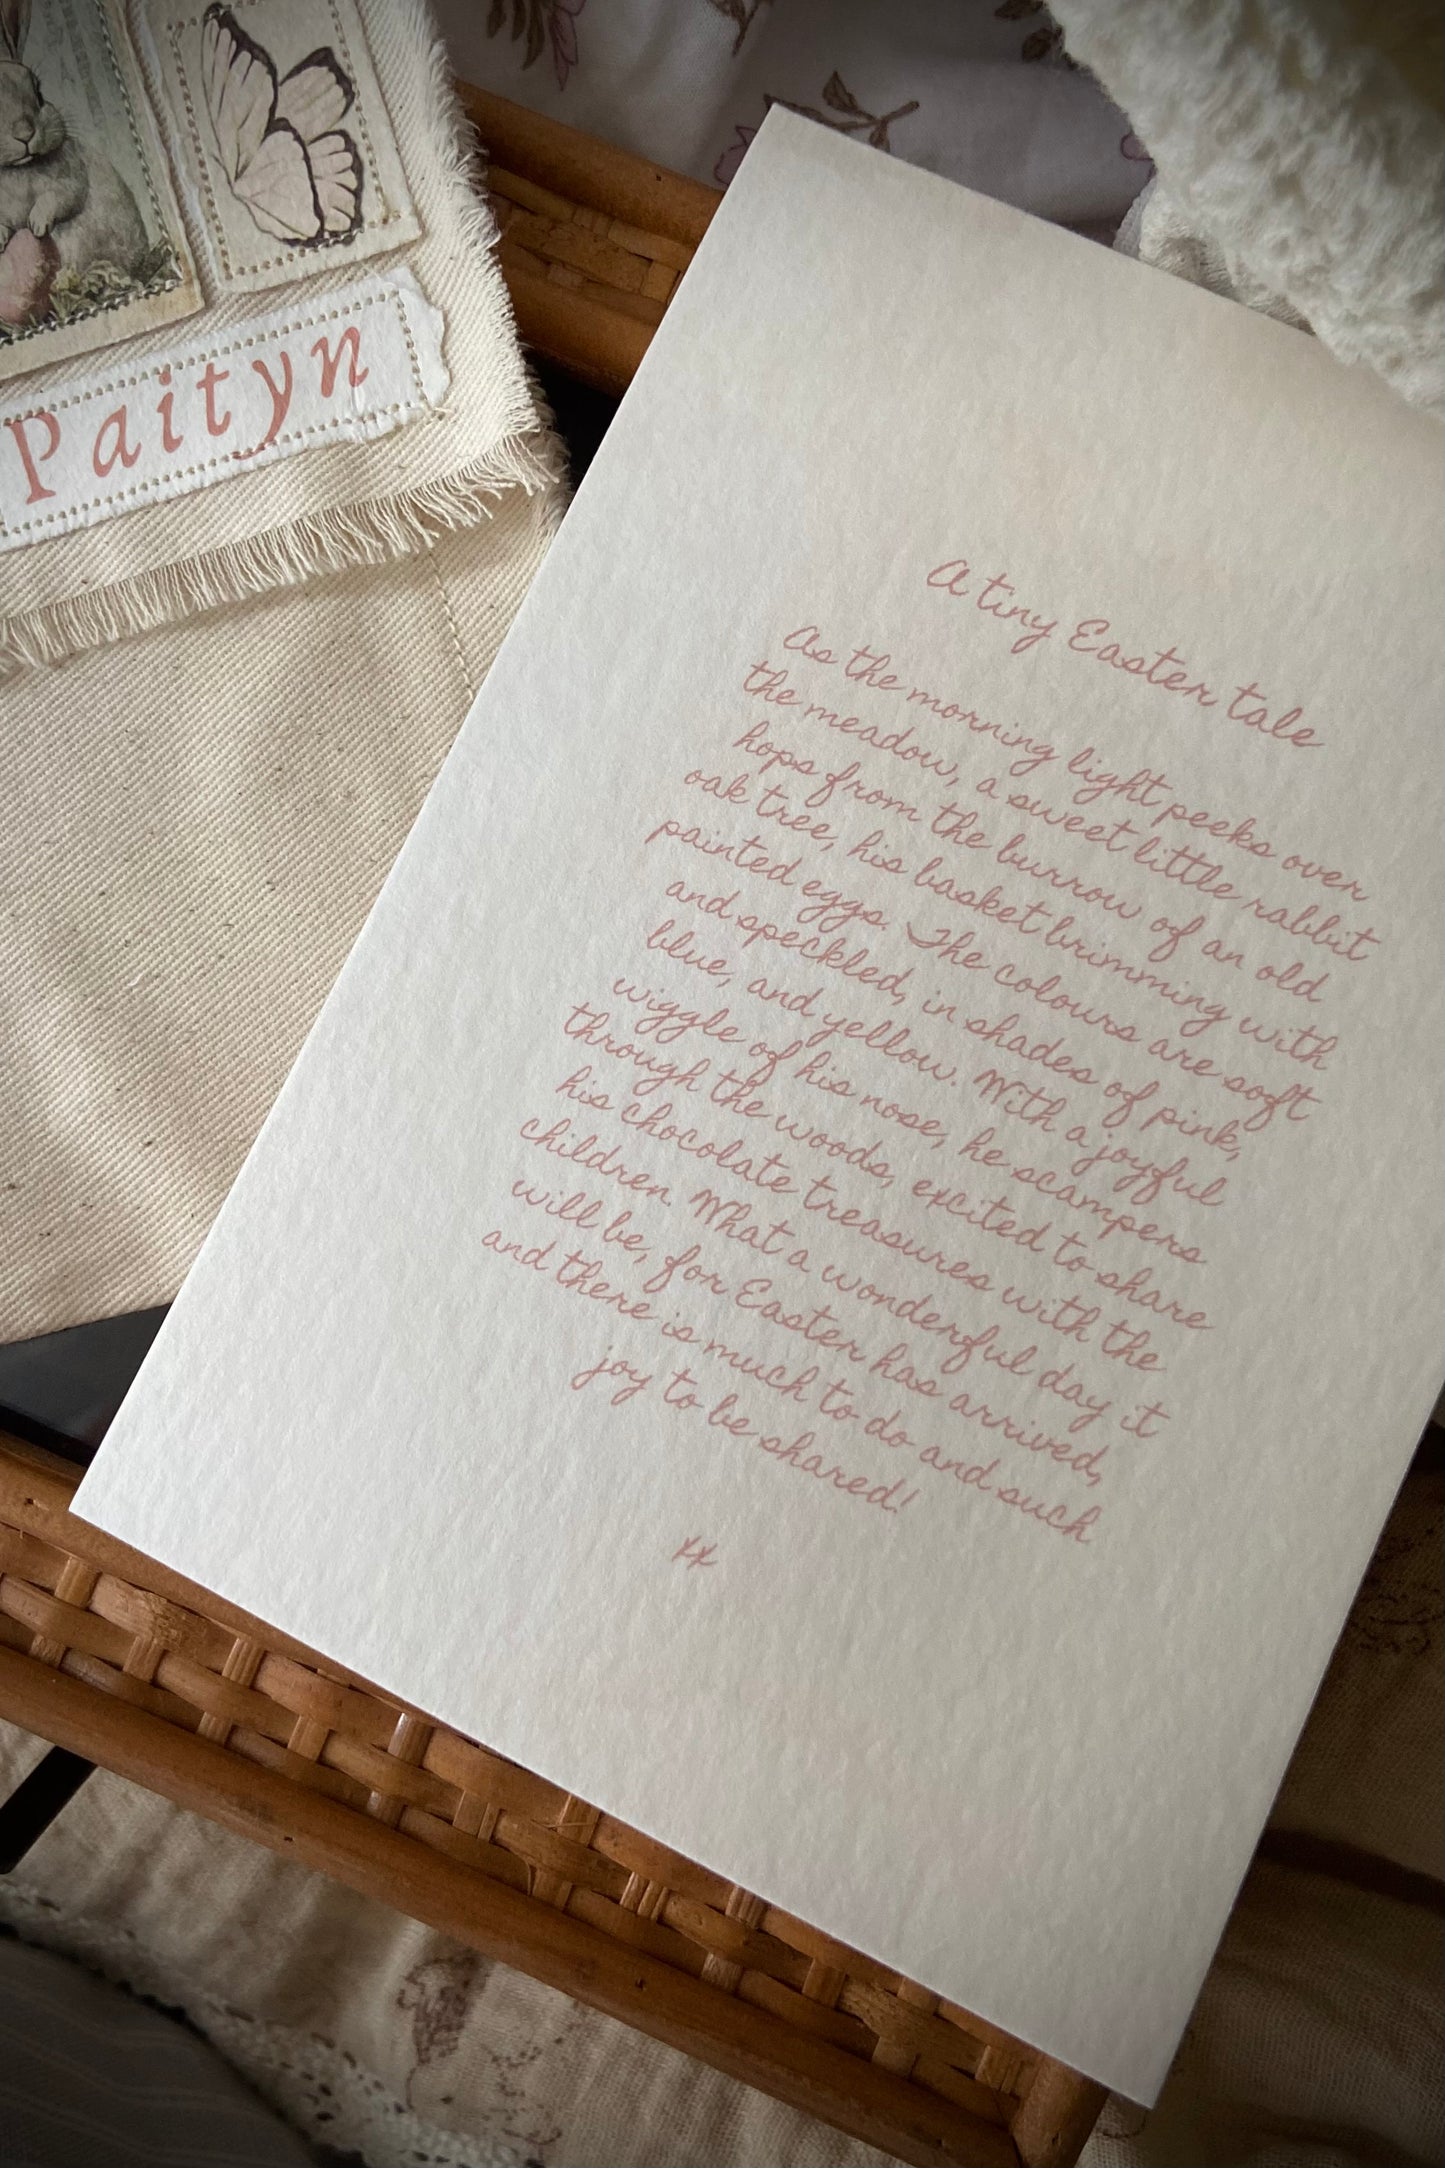 Paityn
A tiny Easter tale
As the morning light peeks over
the meadow, a sweet little rabbit
hops from the burrow of an old
oak tree, his basket brimming with
painted eggs. The colours are soft
and speckled, in shades of pink,
blue, and yellow. With a joyful
wiggle of his nose, he scampers
through the woods, excited to share
his chocolate treasures with the
children. What a wonderful day it
will be, for Easter has arrived,
and there is much to do and such
joy to be shared!
xx